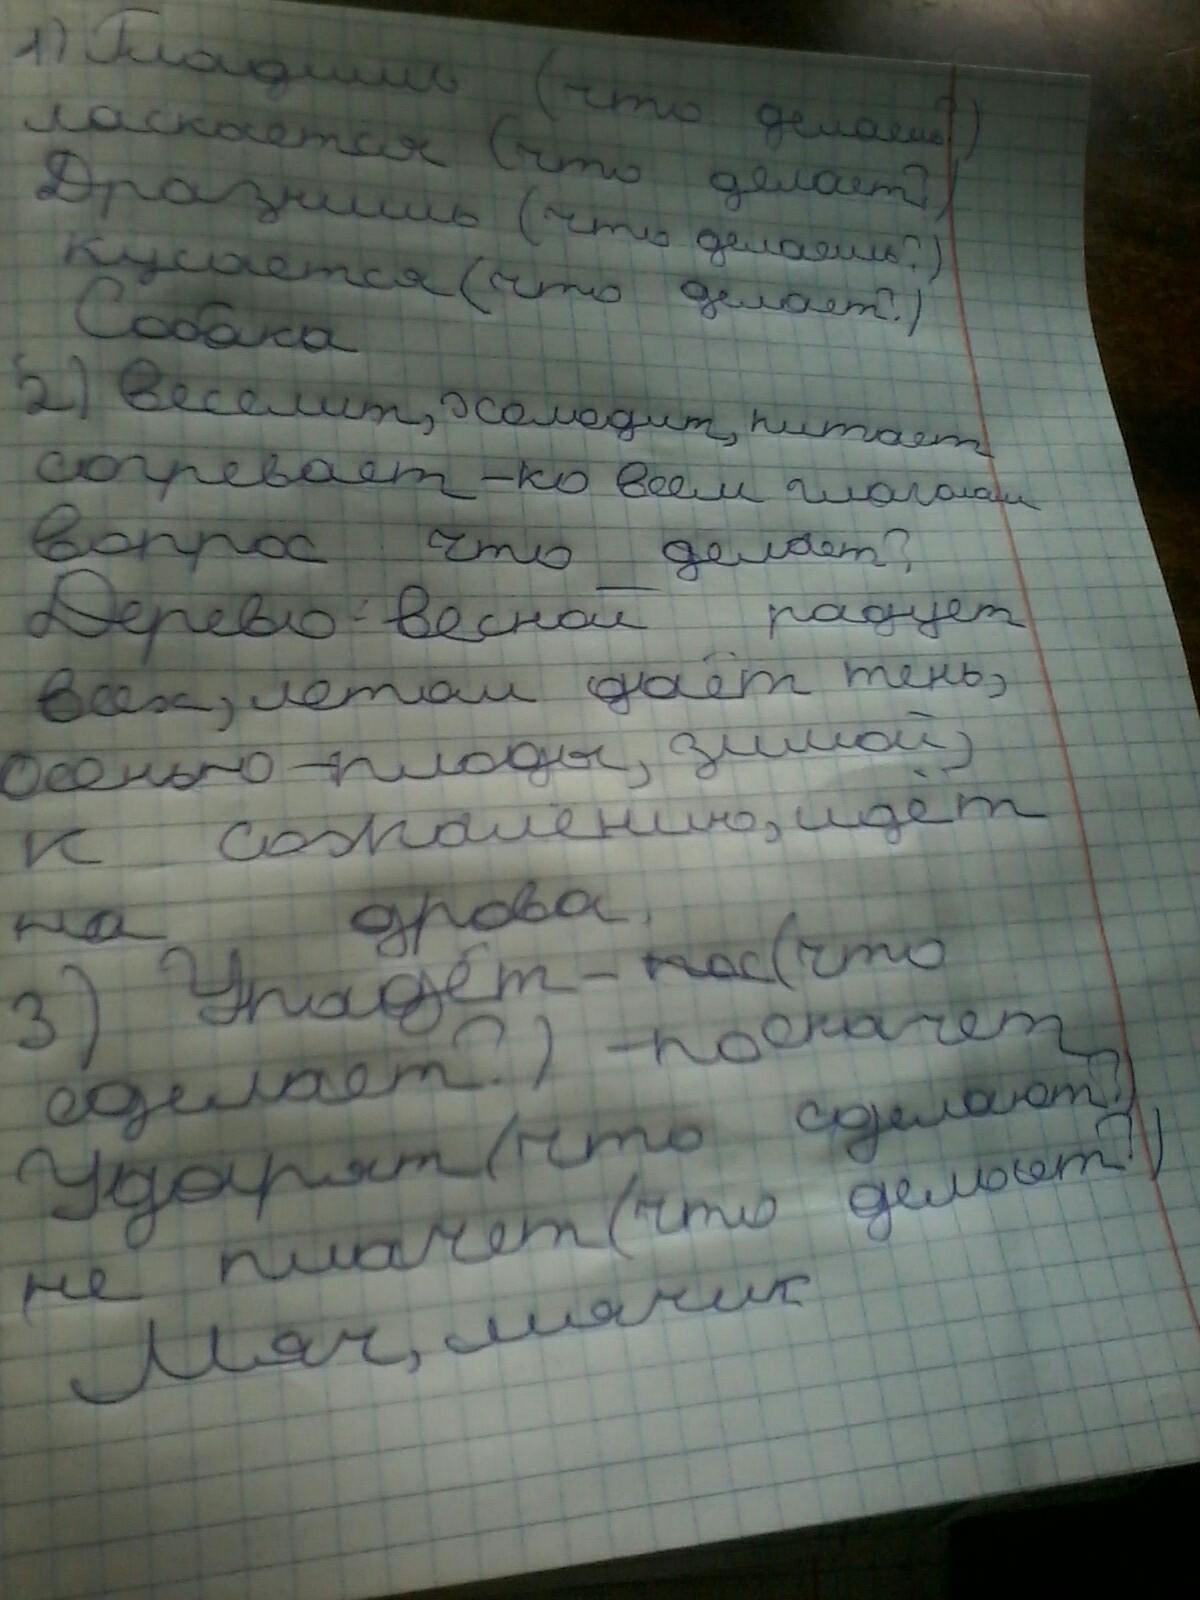 1) Гладишь (что делаешь?)
ласкается (что делает?)
Дразнишь (что делаешь?)
кусается (что делает?)
Собака
2) Веселит, холодит, питает
согревает - ко всем глаголам
вопрос что делает?
Дерево: весной радует
всех, летом даёт тень,
осенью - плоды, зимой,
к сожалению, идёт
на дрова.
3) Упадёт - (что
сделает?) - поскачет
Ударят (что сделают?)
не плачет (что делает?)
Мяч, мячик